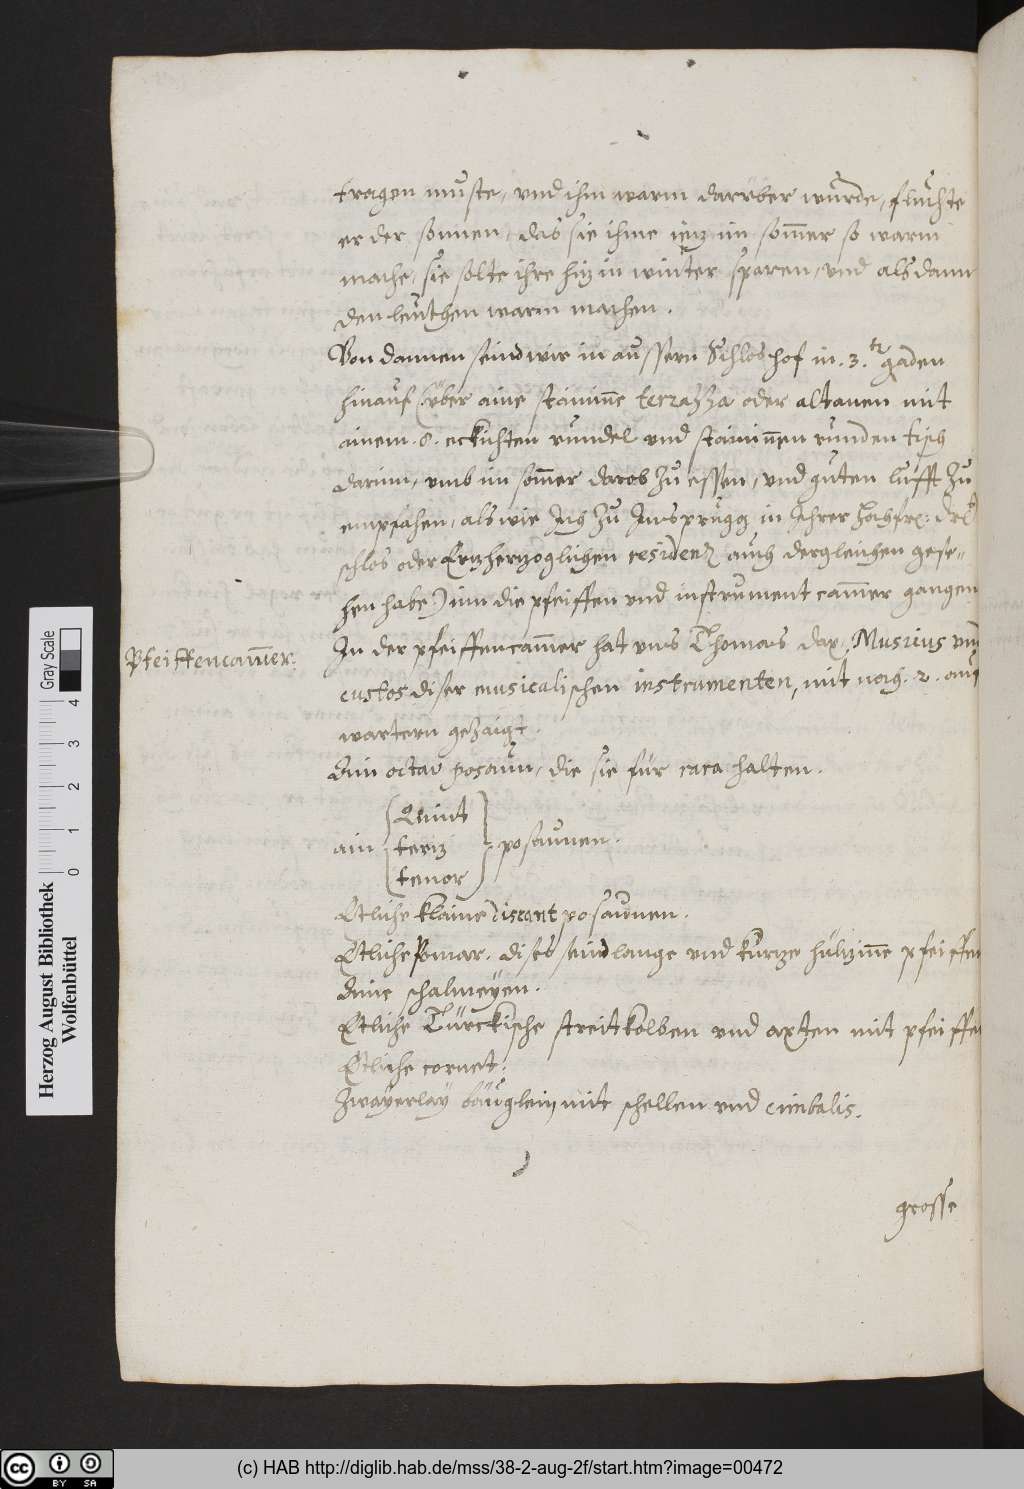 tragen muste, vnd ihm warm darüber wurde, fluchte
er der sonnen, das sie ihme iez im som̄er so warm
mache, sie solte ihre hiz in winter sparen, vnd alsdann
den leuthen warm machen.
Von dannen seind wir in aussern Schloshof in .3.tr gaden
hinauf (:über aine stainine terrazza oder altanen mit
ainem .8. eckichten rundel vnd stainin̄en runden tisch
darinn, vmb im som̄er darob zu essen, vnd guten lufft zu
empfahen, als wir Ich zu Insprugg in Ihrer Hochfr: Drl
schlos oder Erzherzoglichen residenz auch dergleichen gese=
hen habe:) inn die pfeiffen vnd instrument cam̄er gangen
Pfeiffencam̄er.
In der pfeiffencam̄er hat vns Thomas dax, Musicus vnd
custos diser musicalischen instrumenten, mit noch .2. auf
wartern gezaigt.
Ain octav posaun, die sie für rara halten.
ain
Quint
terz
tenor
posaunen.
Etliche klaine discant posaunen.
Etliche Pomar. dises seind lange vnd kurze hülzine pfeiffen
Aine schalmeyen.
Etliche Türckische streitkolben vnd axten mit pfeiffen
Etliche cornet.
Zwayerlay bäuglein mit schellen vnd cimbalis.
grosse
Gray Scale
0 1 2 3 4
Herzog August Bibliothek
Wolfenbüttel
cc BY SA
(c) HAB http://diglib.hab.de/mss/38-2-aug-2f/start.htm?image=00472